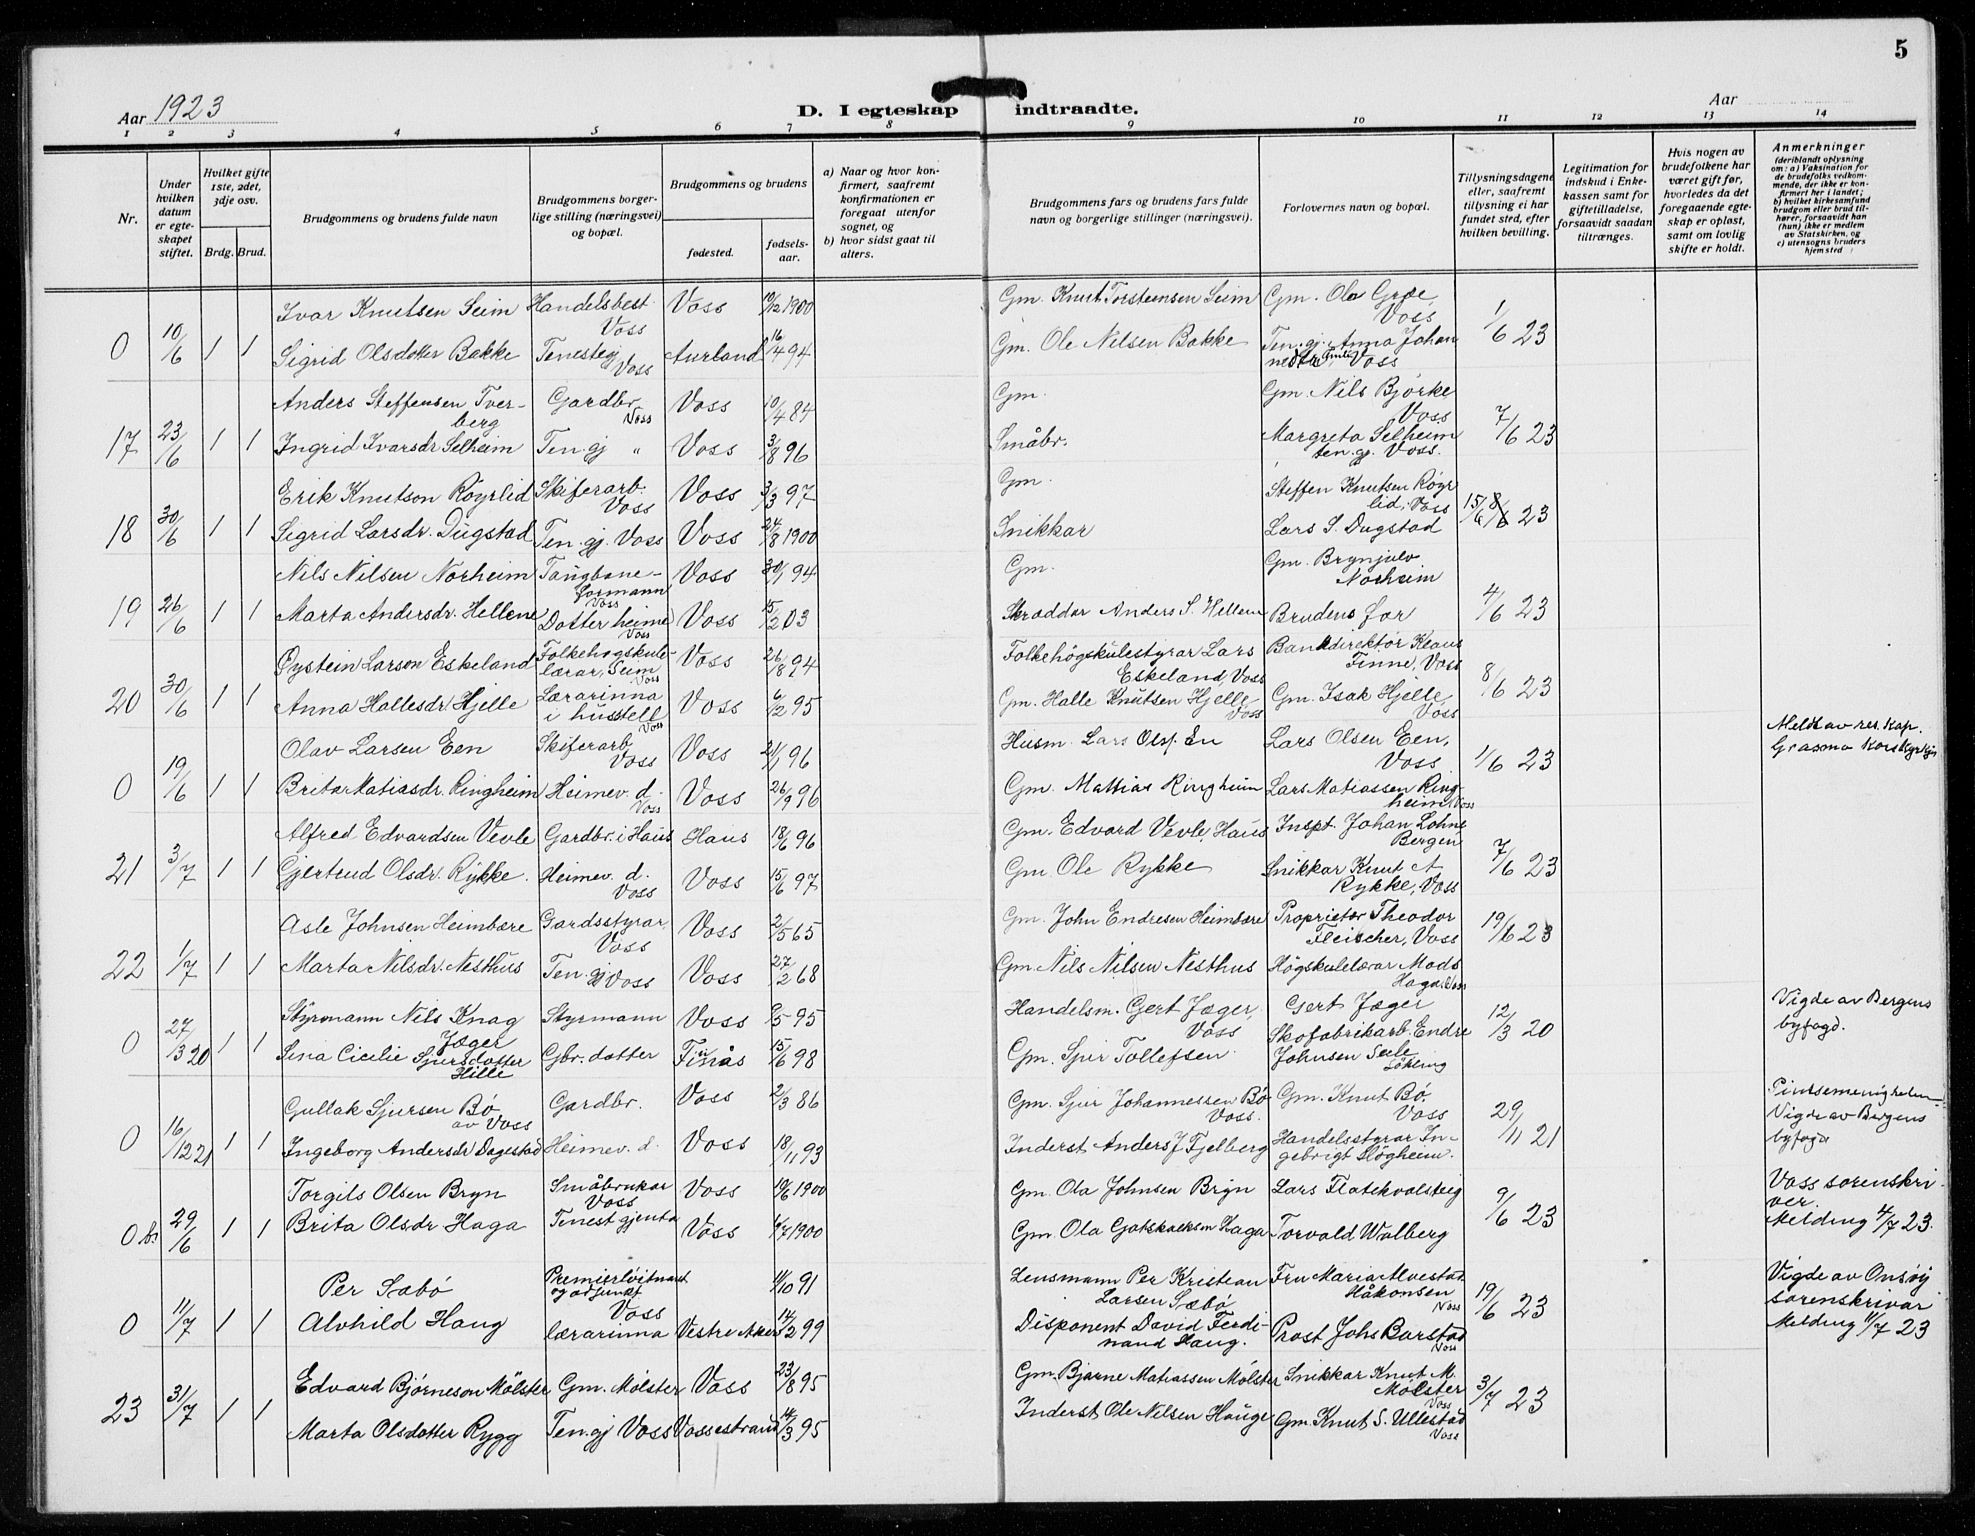 5
Aar 1923
D. I egteskap indtraadte.
Aar
1 2 3 4 5 6 7 8 9 10 11 12 13 14
Nr.
Under hvilken datum er egteskapet stiftet.
Hvilket gifte 1ste, 2det, 3dje osv.
Brdg. Brud.
Brudgommens og brudens fulde navn
Brudgommens borgerlige stilling (næringsvei) og bopæl.
Brudgommens og brudens
fødested.
fødselsaar.
a) Naar og hvor konfirmert, saafremt konfirmationen er foregaat utenfor sognet, og
b) hvor sidst gaat til alters.
Brudgommens fars og brudens fars fulde navn og borgerlige stillinger (næringsvei).
Forlovernes navn og bopæl.
Tillysningsdagene eller, saafremt tillysning ei har fundet sted, efter hvilken bevilling.
Legitimation for indskud i Enkekassen samt for giftetilladelse, forsaavidt saadan tiltrænges.
Hvis nogen av brudefolkene har været gift før, hvorledes da det foregaaende egteskap er opløst, samt om lovlig skifte er holdt.
Anmerkninger
(deriblandt oplysning om: a) Vaksination for de brudefolks vedkommende, der ikke er konfirmert her i landet; b) hvilket kirkesamfund brudgom eller brud tilhører, forsaavidt han (hun) ikke er medlem av Statskirken, og c) utensogns bruders hjemsted
Ivar Knutsen Seim Handelsbest. Voss Voss 10/12 1900 Gm. Knut Torsteinsen Seim Gm. Ola Grøe, Voss 1/6 23
0 10/6 1 1 Sigrid Olsdotter Bakke Tenestegj Voss Aurland 16/4 94 Gm. Ole Nilsen Bakke Ten.gj. Anna Johannesdtr Finne Voss
Anders Steffensen Tverberg Gardbr. Voss Voss 10/4 84 Gm. Gm. Nils Bjørke Voss 7/6 23
17 23/6 1 1 Ingrid Ivarsdr Selheim Ten.gj " Voss 3/8 96 Småbr. Margreta Selheim ten.gj. Voss.
Erik Knutson Røyrlid Skiferarb. Voss Voss 3/3 97 Gm. Steffen Knutsen Røyrlid, Voss 15/6 8/6 23
18 30/6 1 1 Sigrid Larsdr. Dugstad Ten.gj. Voss Voss 24/8 1900 Snikkar Lars S. Dugstad
Nils Nilsen Norheim Taugbaneformann Voss Voss 30/1 94 Gm. Gm. Brynjulv Norheim
19 26/6 1 1 Marta Andersdr. Hellene Dotter heime Voss Voss 15/2 03 Skraddar Anders S. Hellene Brudens far 4/6 23
Øystein Larson Eskeland Folkehøgskulelærar, Seim Voss Voss 26/8 94 Folkehögskulestyrar Lars Eskeland, Voss Bankdirektør Klaus Finne, Voss 8/6 23
20 30/6 1 1 Anna Hallesdr. Hjelle Lærarinna i husstell Voss Voss 6/2 95 Gm. Halle Knutsen Hjelle Voss Gm. Isak Hjelle, Voss
Olav Larsen Een Skiferarb. Voss Voss 21/1 96 Husm. Lars Olsf. En Lars Olsen Een, Voss 1/6 23 Meldt av res. kap. Grasmo Korskyrkja
0 19/6 1 1 Brita Matiasdr. Ringheim Heimev. d. Voss Voss 26/9 96 Gm. Mathias Ringheim Lars Matiassen Ringheim, Voss
Alfred Edvardsen Vevle Gardbr. i Haus Haus 18/6 96 Gm. Edvard Vevle, Haus Inspt. Johan Lohne Bergen 7/6 23
21 3/7 1 1 Gjertrud Olsdr. Rykke. Heimev. d. Voss Voss 15/6 97 Gm Ole Rykke Snikkar Knut A Rykke, Voss
Asle Johnsen Heimbære Gardsstyrar, Voss Voss 2/5 65 Gm. John Endresen Heimbære Proprietær Theodor Fleischer, Voss 19/6 23
22 1/7 1 1 Marta Nilsdr. Nesthus Ten.gj Voss Voss 27/2 68 Gm. Nils Nilsen Nesthus Högskulelærar Mads Haga, Voss
Styrmann Nils Knag Jæger Styrmann Voss 9/5 95 Handelsm. Gert Jæger, Voss Gert Jæger 12/3 20 Vigde av Bergens byfogd.
0 27/3 20 1 1 Sina Cicilie Sjursdotter Hille Gbr. dotter Finås 15/6 98 Gm. Sjur Tollefsen. Skofabrikarb. Endre Johnsen Sæle
Gullak Sjursen Bø av Voss Gardbr. Voss 2/3 86 Gm. Sjur Johannessen Bø Voss. Gm. Knut Bø, Voss 29/11 21 Pintsemenigheten Vigde av Bergens byfogd
0 16/12 21 1 1 Ingeborg Andersdr Dagestad Heimev. d. Voss 18/11 93 Inderst Anders J Fjelberg Handelsstyrar Ingebrigt Fløgheim.
Torgils Olsen Bryn Småbrukar Voss Voss 10/6 1900 Gm. Ola Johnsen Bryn Lars Flatekvalsteig 9/6 23 Voss sorenskriver. Melding 4/7 23.
0 b. 29/6 1 1 Brita Olsdr Haga Tenestgjenta Voss 1/7 1900 Gm. Ola Gotskalksen Haga Torvald Walberg
Per Sæbø Premierløitnant og adjunkt Voss 11/10 91 Lensmann Per Kristian Larsen Sæbø Fru Maria Alvestad Håkonsen Voss 19/6 23 Vigde av Onsøy sorenskrivar Melding 11/7 23
0 11/7 1 1 Alvhild Haug lærarinna Vestre Aker 14/2 99 Disponent David Ferdinand Haug. Prost Johs Barstad Voss
Edvard Bjørneson Mölster Gm. Mölster Voss 23/8 95 Gm. Bjarne Matiassen Mölster Snikkar Knut M. Mölster Voss 3/7 23
23 31/7 1 1 Marta Olsdotter Rygg Ten.gj Voss Vossestrand 14/3 95 Inderst Ole Nilsen Hauge Gm. Knut S. Ullestad Voss